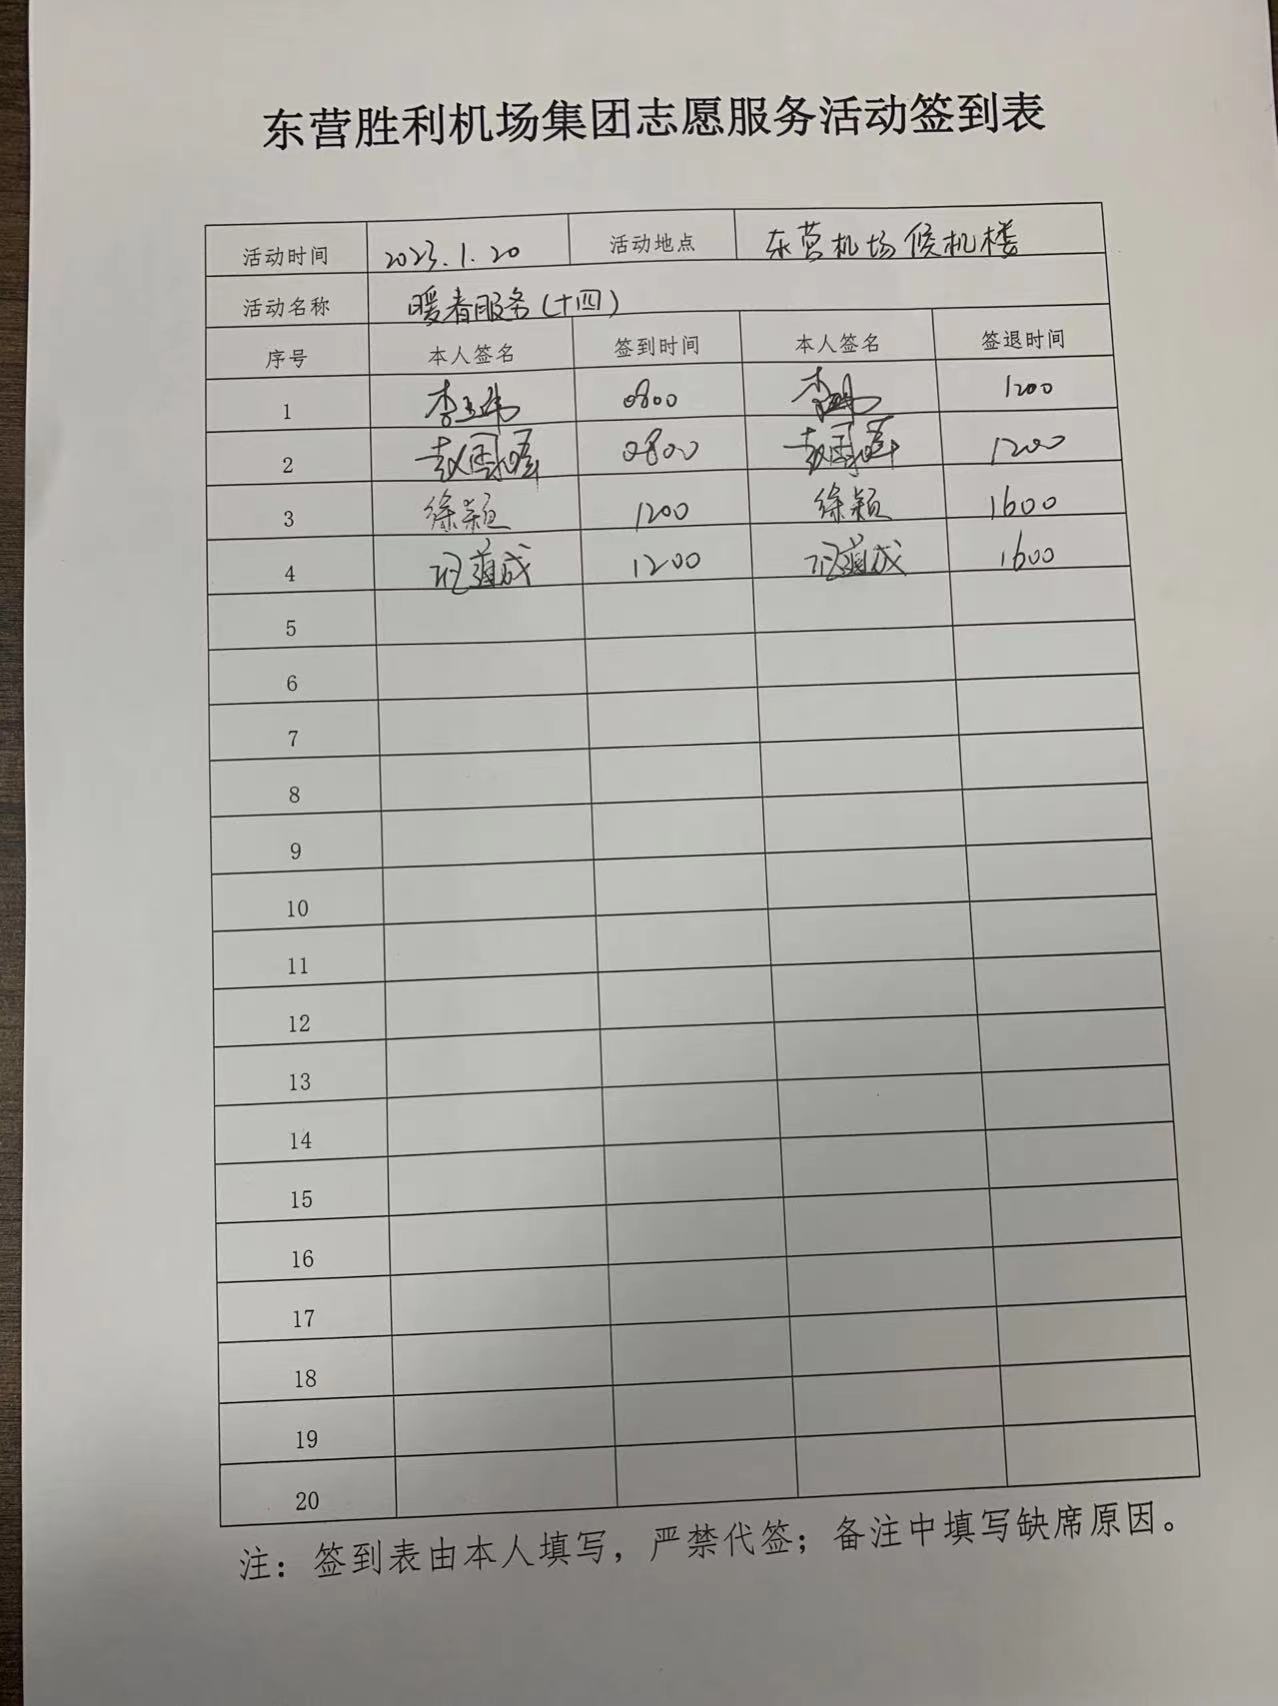 东营胜利机场集团志愿服务活动签到表
活动时间 2023.1.20 活动地点 东营机场候机楼
活动名称 暖春服务(十四)
序号 本人签名 签到时间 本人签名 签退时间
1 李 0800 李 1200
2 赵 0800 赵 1200
3 徐颖 1200 徐颖 1600
4 成 1200 成 1600
5
6
7
8
9
10
11
12
13
14
15
16
17
18
19
20
注：签到表由本人填写，严禁代签；备注中填写缺席原因。